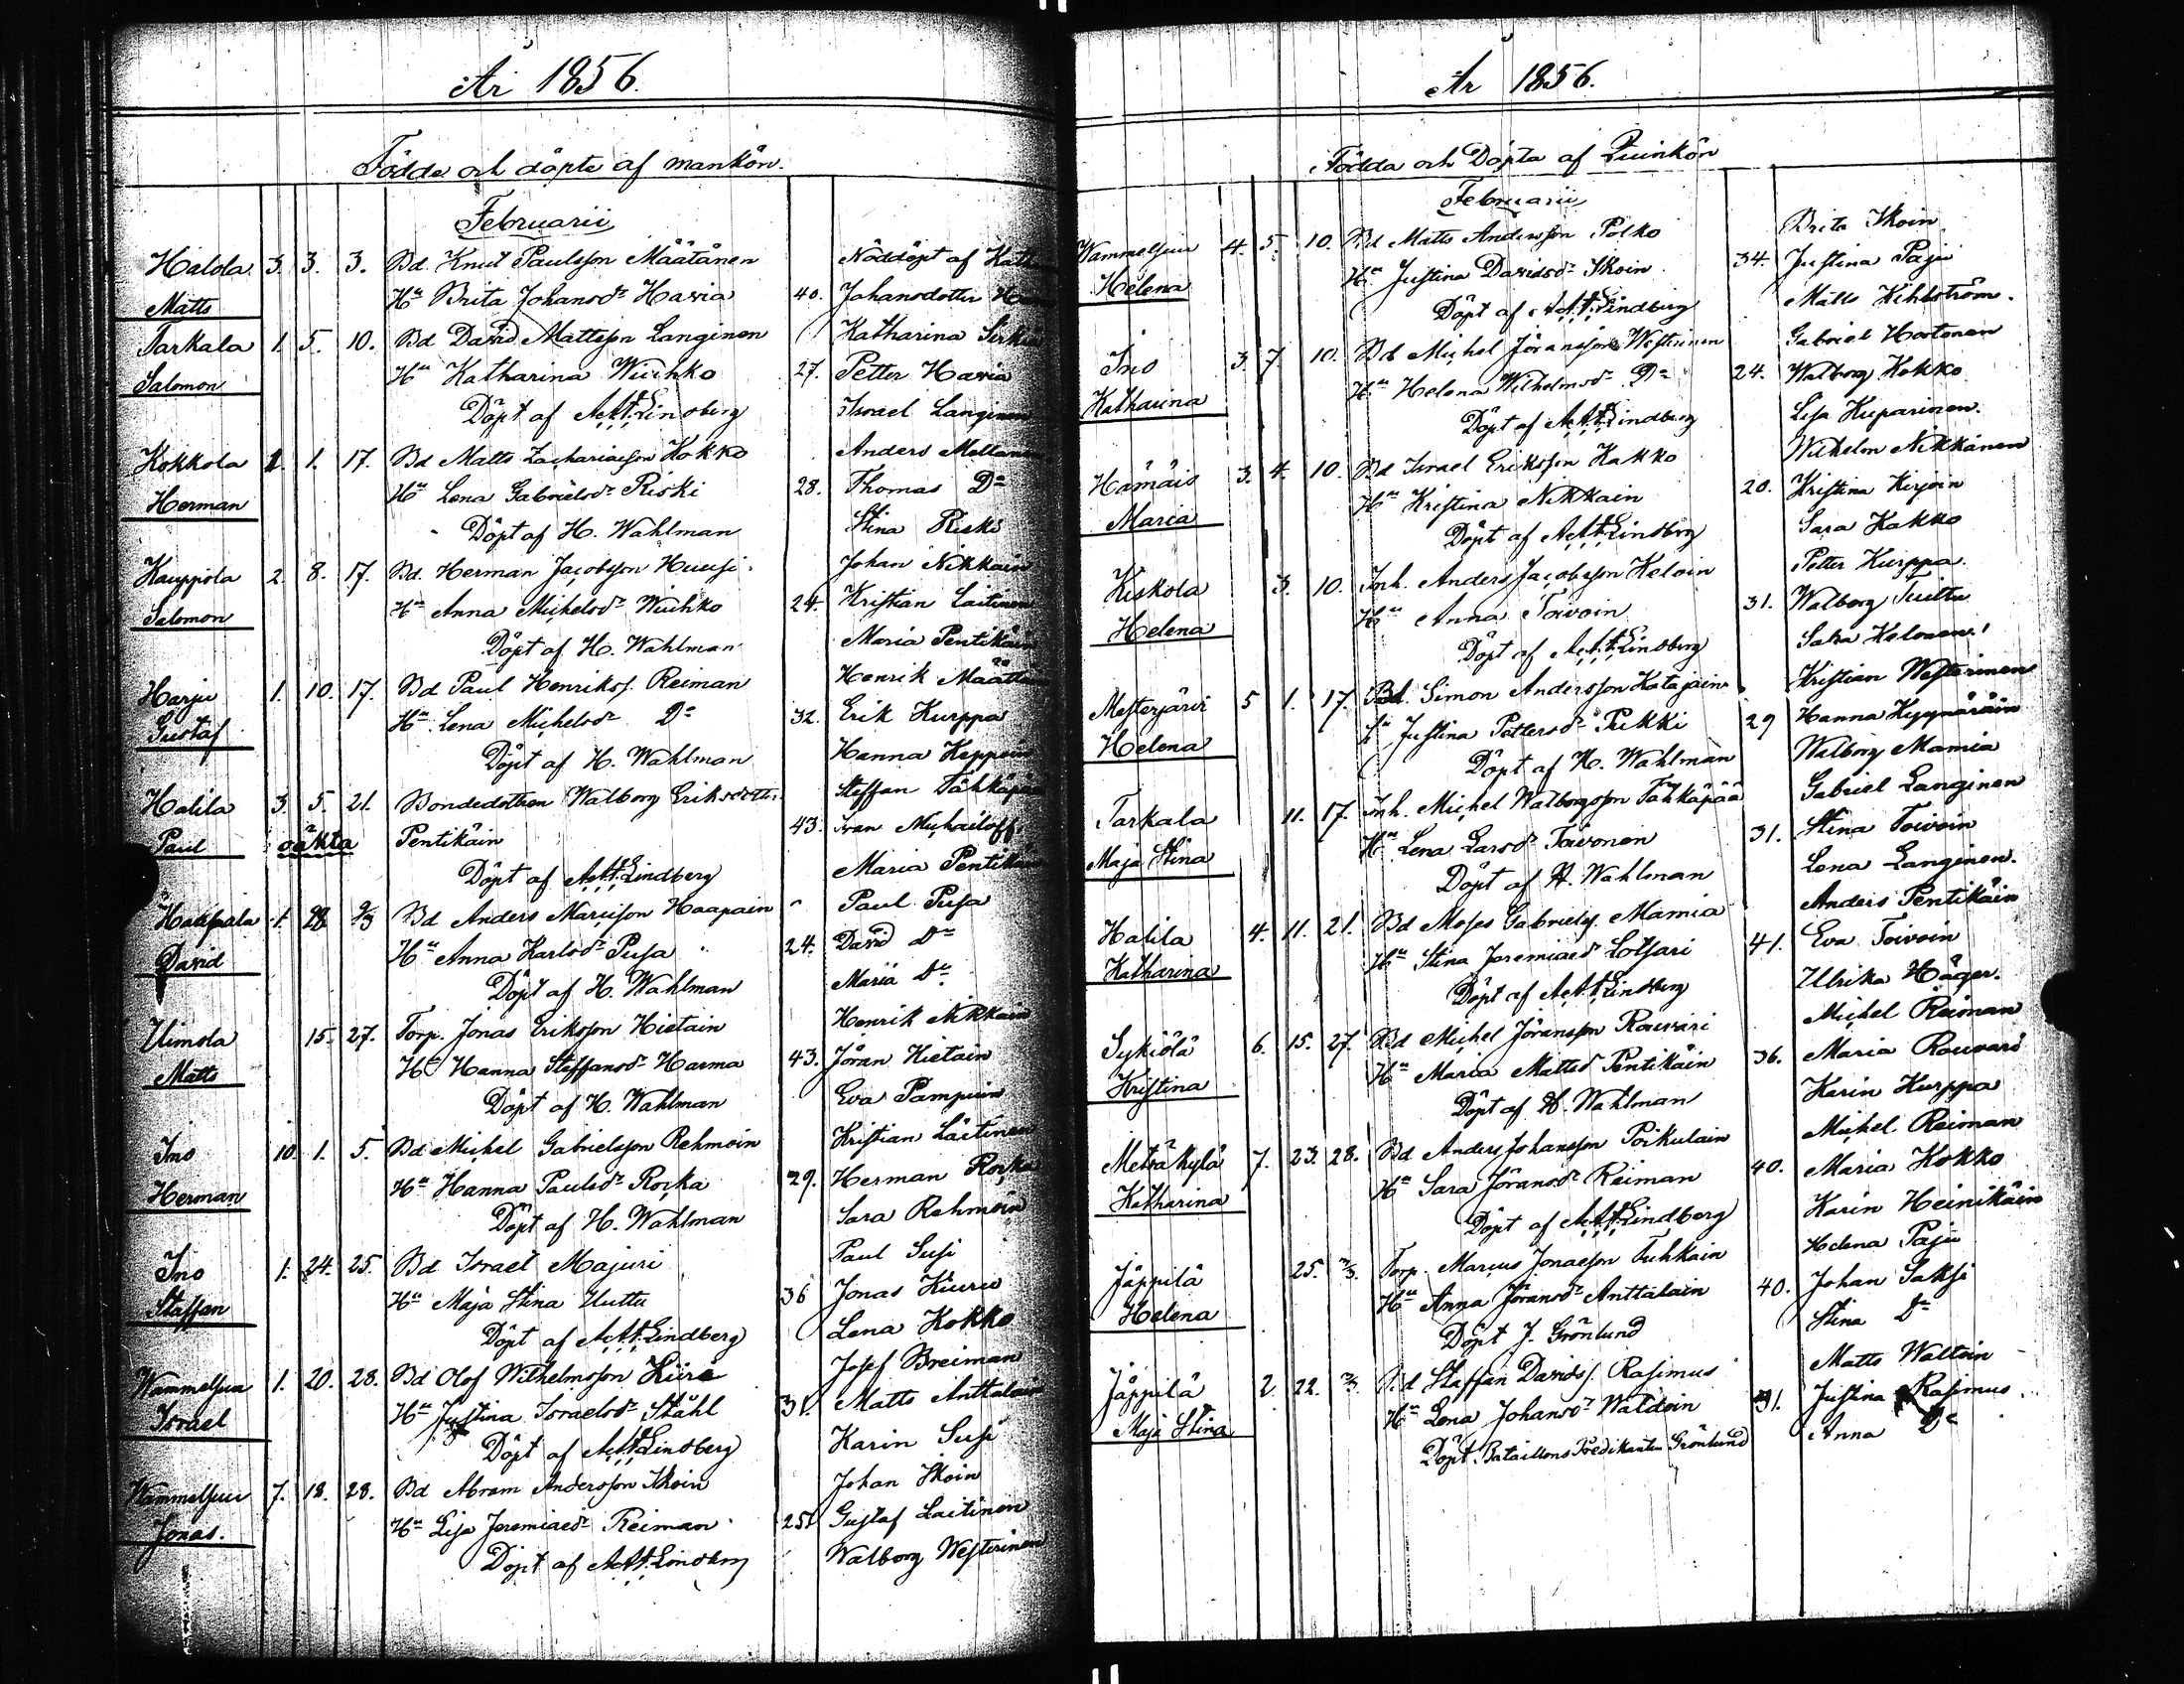 År 1856.
Födde och döpte af mankön.
Februarii
Halola 3. 3. 3. Bd. Knut Paulsson Määtänen Nöddöpt af
Matts Hu Brita Johansdr Havia 40. Johansdotter
Tarkala 1. 5. 10. Bd David Mattsson Langinen Katharina
Salomon Hu Katharina Wuohko 27. Petter Havia
Döpt af A.A.F. Lindberg Israel Langinen
Kokkola 1. 17. Bd Matts Zachariasson Kokko Anders
Herman Hu Lena Gabrielsdr Riski 28. Thomas Do
Döpt af H. Wahlman Stina Riski
Kauppola 2. 8. 17. Bd. Herman Jacobsson Huusi Johan Nikkain
Salomon Hu Anna Michelsdr Wuohko 24. Kristian Laitinen
Döpt af H. Wahlman Maria Pentikäin
Harju 1. 10. 17. Bd Paul Henriks. Reiman Henrik
Gustaf Hu Lena Michelsdr Do 32. Erik Kurppa
Döpt af H. Wahlman Hanna
Halila 3. 5. 21. Bondedottren Walborg Eriksdotter Steffan Tähkäpää
Paul oäkta Pentikäin 43. Ivan Michailoff
Döpt af A.A.F. Lindberg Maria Pentikäin
Haapala 1. 2/3 Bd Anders Marcusson Haapain Paul Pusa
David Hu Anna Karlsdr Pusa 24. David Do
Döpt af H. Wahlman Maria Do
Uimola 15. 27. Torp. Jonas Eriksson Hietain Henrik Nikkain
Matts Hu Hanna Steffansdr Harma 43. Jöran Hietain
Döpt af H. Wahlman Eva
Ino 10. 1. 5. Bd Michel Gabrielsson Rehmoin Kristian Laitinen
Herman Hu Hanna Paulsdr Rocka 29. Herman Rocka
Döpt af H. Wahlman Sara Rehmoin
Ino 1. 24. 25. Bd Israel Majuri Paul Susi
Staffan Hu Maja Stina Uuttu 36 Jonas Kiuru
Döpt af A.A.F. Lindberg Lena Kokko
Wammelsuu 1. 20. 28. Bd Olof Wilhelmsson Josef Breiman
Israel Hu Justina Israelsdr Ståhl 31. Matts Anttalain
Döpt af A.A.F. Lindberg Karin Susi
Wammelsuu 7. 18. 28. Bd Abram Andersson Ikoin Johan Ikoin
Jonas. Hu Lisa Jeremiaedr Reiman 25 Gustaf Laitinen
Döpt af A.A.F. Lindberg Walborg Westerinen
År 1856.
Födda och Döpta af Quinkön
Februarii
Wammelsuu 4. 5. 10. Bd Matts Andersson Polko Brita Ikoin
Helena Hu Justina Davidsdr Ikoin 34. Justina Paju
Döpt af A.A.F. Lindberg Matts Kihlström.
Ino 3. 7. 10. Bd Michel Jöransson Westerinen Gabriel Hartonen
Katharina Hu Helena Wilhelmsdr Do 24. Walborg Kokko
Döpt af A.A.F. Lindberg Lisa Kuparinen.
Hämäis 3. 4. 10. Bd Israel Eriksson Kakko Wilhelm Nikkänen
Maria Hu Kristina Nikkain 20. Kristina Kirjoin
Döpt af A.A.F. Lindberg Sara Kakko
Kiskola 3. 10. Inh. Anders Jacobsson Keloin Petter Kurppa.
Helena Hu Anna Toivoin 31. Walborg Tuittu
Döpt af A.A.F. Lindberg Sara Kelonen
Mesterjärvi 5 1. 17. Bd. Simon Andersson Katajain Kristian Westerinen
Helena Hu Justina Pettersdr Pukki 29 Hanna Kyynäräin
Döpt af H. Wahlman Walborg Mamia
Tarkala 11. 17. Inh. Michel Walborgsson Tähkäpää Gabriel Langinen
Maja Stina Hu Lena Larsdr Toivonen 31. Stina Toivoin
Döpt af H. Wahlman Lena Langinen.
Halila 4. 11. 21. Bd Moses Gabriels. Mamia Anders Pentikäin
Katharina Hu Stina Jeremiaedr Lotsari 41. Eva Toivoin
Döpt af A.A.F. Lindberg Ulrika Häger.
Sykiölä 6. 15. 27. Bd Michel Jöransson Rouvari Michel Reiman
Kristina Hu Maria Mattsd Pentikäin 36. Maria Rouvari
Döpt af H. Wahlman Karin Kurppa
Metsäkylä 7. 23. 28. Bd Anders Johansson Poikulain Michel Reiman
Katharina Hu Sara Jöransdr Reiman 40. Maria Kokko
Döpt af A.A.F. Lindberg Karin Heinikäin
Jäppilä 25. 2/3. Torp. Marcus Jonaesson Tuhkain Helena Paju
Helena Hu Anna Jöransdr Anttalain 40. Johan Saksi
Döpt J. Grönlund Stina Do
Jäppilä 2. 22. 2/3. Bd Staffan Davids. Rasimus Matts Waltoin
Maja Stina Hu Lena Johansdr Waldoin 31. Justina Rasimus
Döpt Bataillons Predikanten Grönlund Anna Do